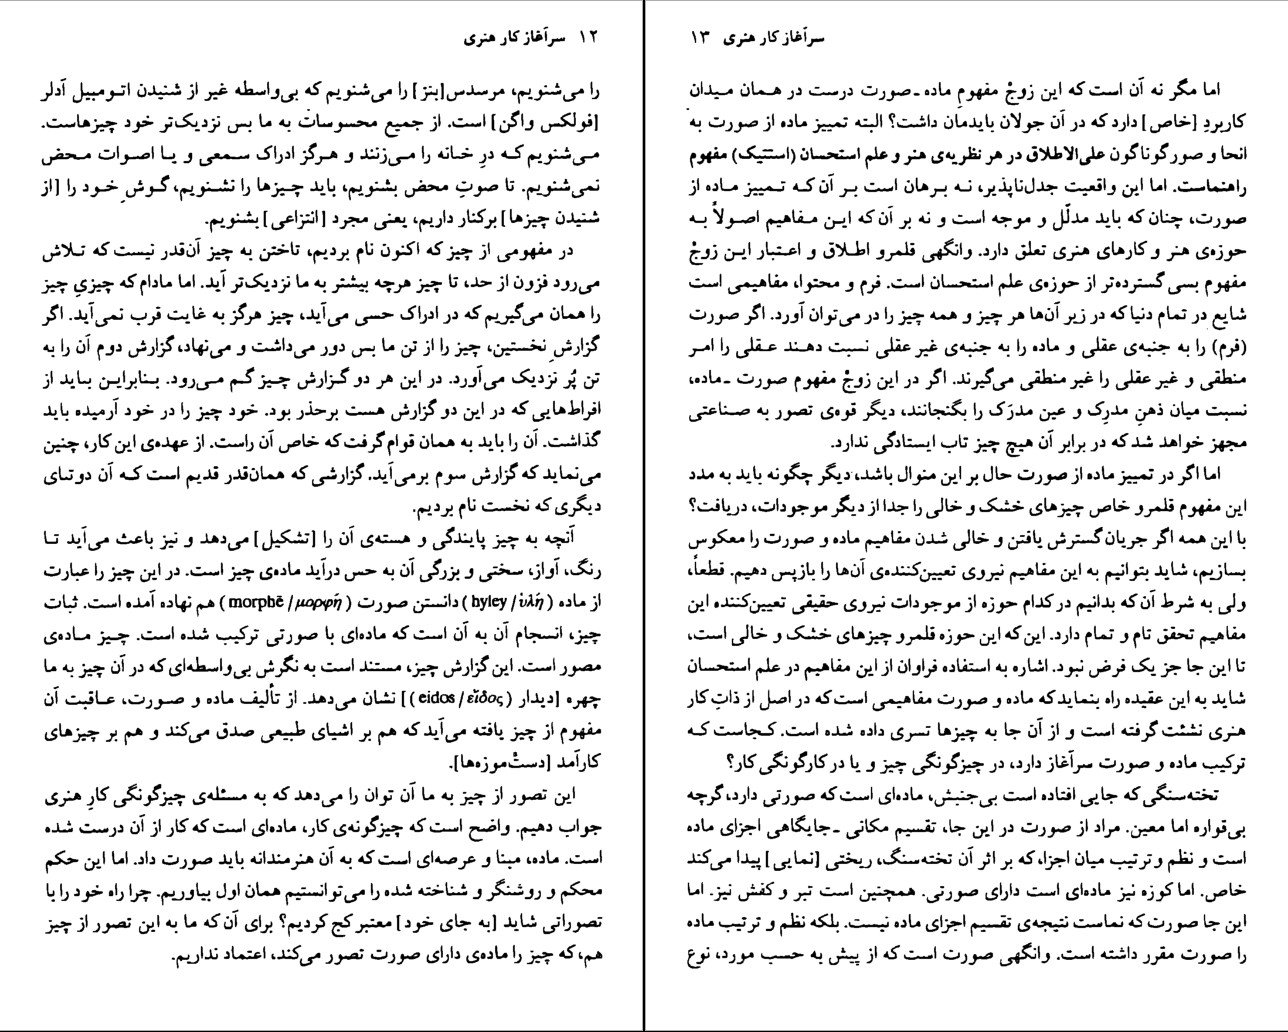 ۱۲ سرآغاز کار هنری
را می‌شنویم، مرسدس[بنز] را می‌شنویم که بی‌واسطه غیر از شنیدن اتومبیل آدلر
[فولکس واگن] است. از جمیع محسوسات به ما بس نزدیک‌تر خود چیزهاست.
می‌شنویم که درِ خانه را می‌زنند و هرگز ادراک سمعی و یا اصوات محض
نمی‌شنویم. تا صوتِ محض بشنویم، باید چیزها را نشنویم، گوش خود را [از
شنیدن چیزها] برکنار داریم، یعنی مجرد [انتزاعی] بشنویم.
در مفهومی از چیز که اکنون نام بردیم، تاختن به چیز آن‌قدر نیست که تلاش
می‌رود فزون از حد، تا چیز هرچه بیشتر به ما نزدیک‌تر آید. اما مادام که چیزیِ چیز
را همان می‌گیریم که در ادراک حسی می‌آید، چیز هرگز به غایت قرب نمی‌آید. اگر
گزارش نخستین، چیز را از تن ما بس دور می‌داشت و می‌نهاد، گزارش دوم آن را به
تن پُر نزدیک می‌آورد. در این هر دو گزارش چیز گم می‌رود. بنابراین باید از
افراط‌هایی که در این دو گزارش هست برحذر بود. خود چیز را در خود آرمیده باید
گذاشت. آن را باید به همان قوام گرفت که خاص آن راست. از عهده‌ی این کار، چنین
می‌نماید که گزارش سوم برمی‌آید. گزارشی که همان‌قدر قدیم است که آن دوتای
دیگری که نخست نام بردیم.
آنچه به چیز پایندگی و هسته‌ی آن را [تشکیل] می‌دهد و نیز باعث می‌آید تا
رنگ، آواز، سختی و بزرگی آن به حس درآید ماده‌ی چیز است. در این چیز را عبارت
از ماده (hyley / ὑλή) دانستن صورت (morphē / μορφή) هم نهاده آمده است. ثبات
چیز، انسجام آن به آن است که ماده‌ای با صورتی ترکیب شده است. چیز ماده‌ی
مصور است. این گزارش چیز، مستند است به نگرش بی‌واسطه‌ای که در آن چیز به ما
چهره [دیدار (eidos / εἶδος)] نشان می‌دهد. از تألیف ماده و صورت، عاقبت آن
مفهوم از چیز یافته می‌آید که هم بر اشیای طبیعی صدق می‌کند و هم بر چیزهای
کارآمد [دستْ‌موزه‌ها].
این تصور از چیز به ما آن توان را می‌دهد که به مسئله‌ی چیزگونگی کارِ هنری
جواب دهیم. واضح است که چیزگونه‌ی کار، ماده‌ای است که کار از آن درست شده
است. ماده، مبنا و عرصه‌ای است که به آن هنرمندانه باید صورت داد. اما این حکم
محکم و روشنگر و شناخته شده را می‌توانستیم همان اول بیاوریم. چرا راه خود را با
تصوراتی شاید [به جای خود] معتبر کج کردیم؟ برای آن که ما به این تصور از چیز
هم، که چیز را ماده‌ی دارای صورت تصور می‌کند، اعتماد نداریم.
سرآغاز کار هنری ۱۳
اما مگر نه آن است که این زوجْ مفهوم ماده ـ صورت درست در همان میدان
کاربردِ [خاص] دارد که در آن جولان بایدمان داشت؟ البته تمییز ماده از صورت به
انحا و صور گوناگون علی‌الاطلاق در هر نظریه‌ی هنر و علم استحسان (استتیک) مفهوم
راهنماست. اما این واقعیت جدل‌ناپذیر، نه برهان است بر آن که تمییز ماده از
صورت، چنان که باید مدلّل و موجه است و نه بر آن که این مفاهیم اصولاً به
حوزه‌ی هنر و کارهای هنری تعلق دارد. وانگهی قلمرو اطلاق و اعتبار این زوجْ
مفهوم بسی گسترده‌تر از حوزه‌ی علم استحسان است. فرم و محتوا، مفاهیمی است
شایع در تمام دنیا که در زیر آن‌ها هر چیز و همه چیز را در می‌توان آورد. اگر صورت
(فرم) را به جنبه‌ی عقلی و ماده را به جنبه‌ی غیر عقلی نسبت دهند عقلی را امر
منطقی و غیر عقلی را غیر منطقی می‌گیرند. اگر در این زوجْ مفهوم صورت ـ ماده،
نسبت میان ذهنِ مدرِک و عین مدرَک را بگنجانند، دیگر قوه‌ی تصور به صناعتی
مجهز خواهد شد که در برابر آن هیچ چیز تاب ایستادگی ندارد.
اما اگر در تمییز ماده از صورت حال بر این منوال باشد، دیگر چگونه باید به مدد
این مفهوم قلمرو خاص چیزهای خشک و خالی را جدا از دیگر موجودات، دریافت؟
با این همه اگر جریان گسترش یافتن و خالی شدن مفاهیم ماده و صورت را معکوس
بسازیم، شاید بتوانیم به این مفاهیم نیروی تعیین‌کننده‌ی آن‌ها را بازپس دهیم. قطعاً،
ولی به شرط آن که بدانیم در کدام حوزه از موجودات نیروی حقیقی تعیین‌کننده این
مفاهیم تحقق تام و تمام دارد. این که این حوزه قلمرو چیزهای خشک و خالی است،
تا این جا جز یک فرض نبود. اشاره به استفاده فراوان از این مفاهیم در علم استحسان
شاید به این عقیده راه بنماید که ماده و صورت مفاهیمی است که در اصل از ذاتِ کار
هنری نشئت گرفته است و از آن جا به چیزها تسری داده شده است. کجاست که
ترکیب ماده و صورت سرآغاز دارد، در چیزگونگی چیز و یا در کارگونگی کار؟
تخته‌سنگی که جایی افتاده است بی‌جنبش، ماده‌ای است که صورتی دارد، گرچه
بی‌قواره اما معین. مراد از صورت در این جا، تقسیم مکانی ـ جایگاهی اجزای ماده
است و نظم و ترتیب میان اجزا، که بر اثر آن تخته‌سنگ، ریختی [نمایی] پیدا می‌کند
خاص. اما کوزه نیز ماده‌ای است دارای صورتی. همچنین است تبر و کفش نیز. اما
این جا صورت که نماست نتیجه‌ی تقسیم اجزای ماده نیست. بلکه نظم و ترتیب ماده
را صورت مقرر داشته است. وانگهی صورت است که از پیش به حسب مورد، نوع